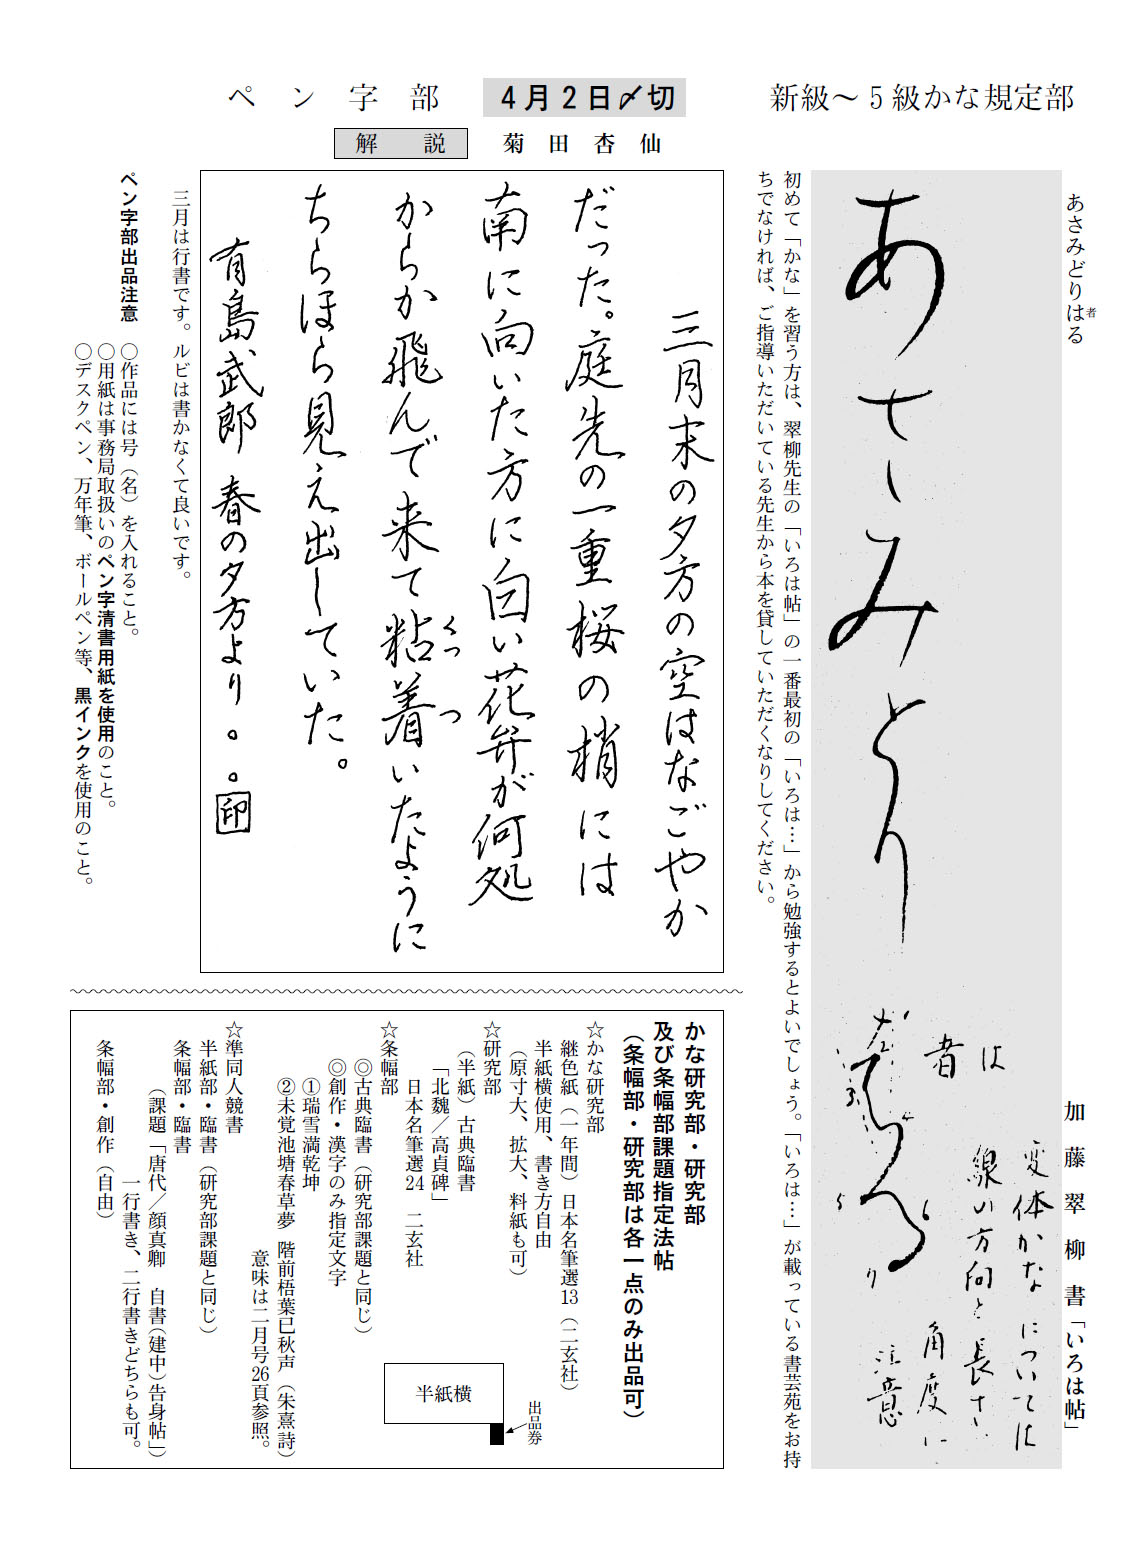 新級～5級かな規定部
あさみどりはる
者
加藤翠柳書「いろは帖」
あさみとりはる
は
者
変体かなについては
線の方向と長さ
角度に
注意
初めて「かな」を習う方は、翠柳先生の「いろは帖」の一番最初の「いろは…」から勉強するとよいでしょう。「いろは…」が載っている書芸苑をお持
ちでなければ、ご指導いただいている先生から本を貸していただくなりしてください。
ペン字部
4月2日〆切
解説 菊田杏仙
三月末の夕方の空はなごやか
だった。庭先の一重桜の梢には
南に向いた方に白い花弁が何処
からか飛んで来て粘着いたように
くっ つ
ちらほら見え出していた。
有島武郎 春の夕方より。。印
三月は行書です。ルビは書かなくて良いです。
ペン字部出品注意
○作品には号（名）を入れること。
○用紙は事務局取扱いのペン字清書用紙を使用のこと。
○デスクペン、万年筆、ボールペン等、黒インクを使用のこと。
かな研究部・研究部
及び条幅部課題指定法帖
（条幅部・研究部は各一点のみ出品可）
☆かな研究部
継色紙（一年間）日本名筆選13（二玄社）
半紙横使用、書き方自由
（原寸大、拡大、料紙も可）
☆研究部
（半紙）古典臨書
「北魏／高貞碑」
日本名筆選24 二玄社
☆条幅部
◎古典臨書（研究部課題と同じ）
◎創作・漢字のみ指定文字
①瑞雪満乾坤
②未覚池塘春草夢 階前梧葉已秋声（朱熹詩）
意味は二月号26頁参照。
☆準同人競書
半紙部・臨書（研究部課題と同じ）
条幅部・臨書
（課題「唐代／顔真卿 自書（建中）告身帖」）
一行書き、二行書きどちらも可。
条幅部・創作（自由）
半紙横
出品券